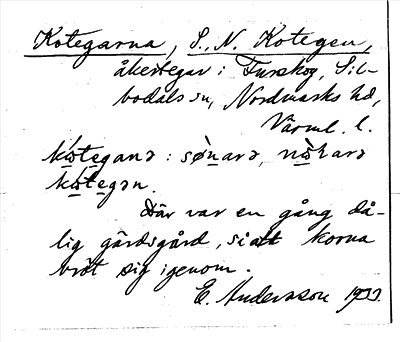 Kotegarna, S., N. Kotegen,
åkertegar i Furskog, Sil-
bodals sn, Nordmarks hd,
Värml. l.
kòtegana : sønara, nòrara
kòtegan.
Där var en gång då-
lig gärdsgård, så att korna
bröt sig igenom.
E. Andersson